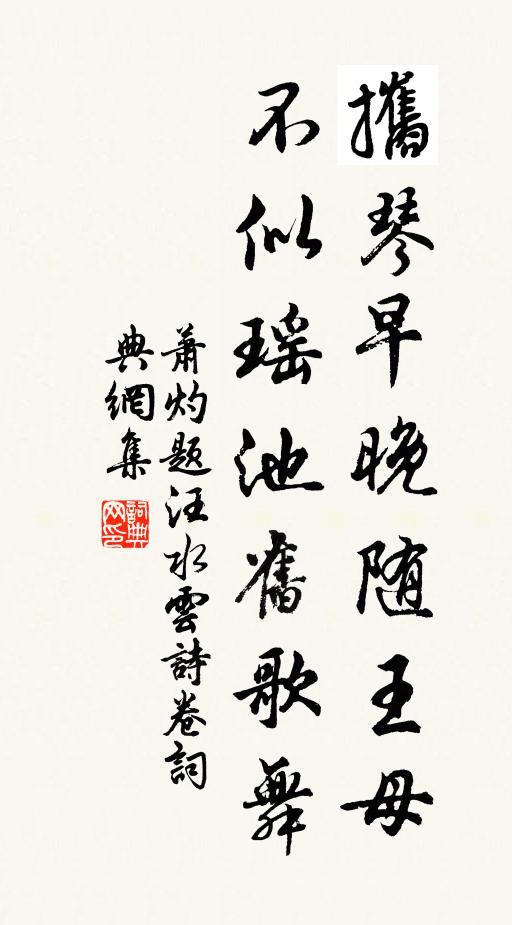 攜琴早晚随王母
不似瑶池舊歌舞
蕭灼题汪水雲詩卷詞
典網集
詞典网印